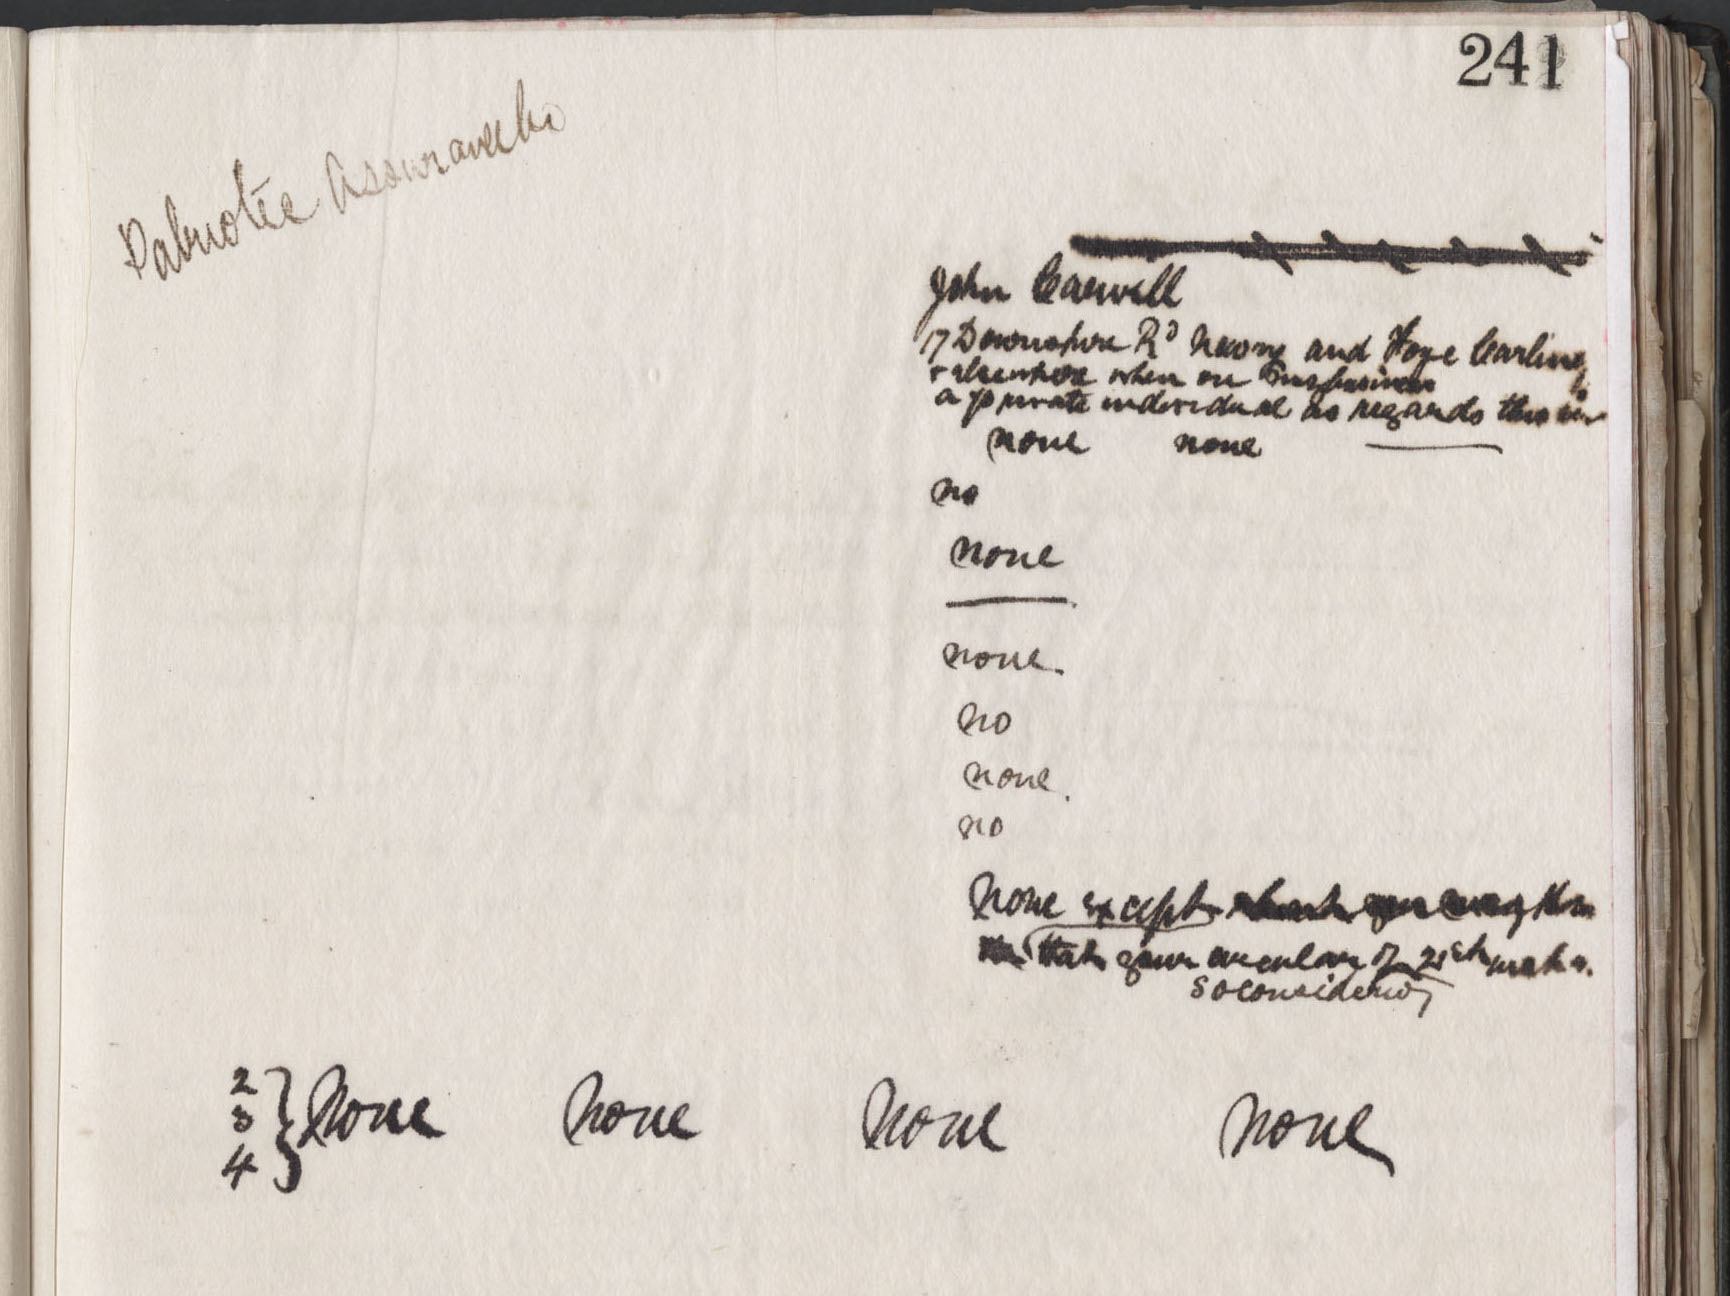 241
Patriotic Assurance Co
John Carvill
17 Downshire Rd Newry and Fore Carling
& elsewhere when on business
a private individual as regards this
none none
no
none
none.
no
none.
no
None except
that your circular of 21st
so considering
2
3 None None None None
4